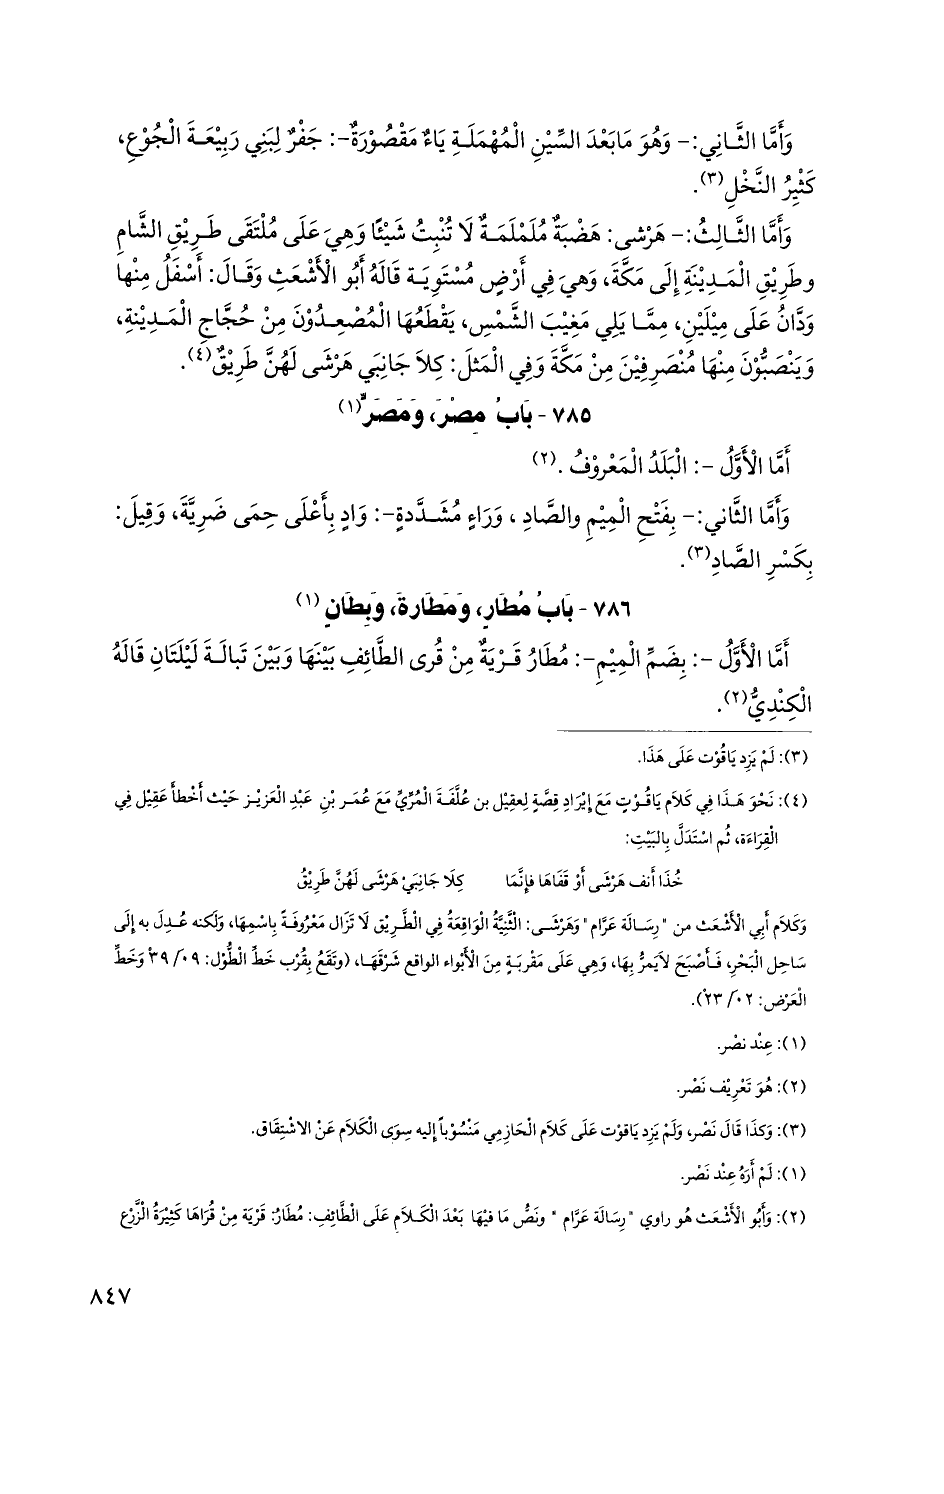 وَأَمَّا الثَّانِي:- وَهُوَ مَابَعْدَ السِّيْنِ الْمُهْمَلَةِ يَاءٌ مَقْصُوْرَةٌ-: جَفْرٌ لِبَنِي رَبِيْعَةَ الْجُوْعِ،
كَثِيْرُ النَّخْلِ(٣).
وَأَمَّا الثَّالِثُ:- هَرْشى: هَضْبَةٌ مُلَمْلَمَةٌ لَا تُنْبِتُ شَيْئًا وَهِيَ عَلَى مُلْتَقَى طَرِيْقِ الشَّامِ
وطَرِيْقِ الْمَدِيْنَةِ إِلَى مَكَّةَ، وَهيَ فِي أَرْضٍ مُسْتَوِيَة قَالَهُ أَبُو الْأَشْعَثِ وَقَالَ: أَسْفَلُ مِنْها
وَدَّانُ عَلَى مِيْلَيْنِ، مِمَّا يَلِي مَغِيْبَ الشَّمْسِ، يَقْطَعُهَا الْمُصْعِدُوْنَ مِنْ حُجَّاجِ الْمَدِيْنةِ،
وَيَنْصَبُّوْنَ مِنْهَا مُنْصَرِفِيْنَ مِنْ مَكَّةَ وَفِي الْمَثَلِ: كِلاَ جَانِبَي هَرْشَى لَهُنَّ طَرِيْقٌ(٤).
٧٨٥ - بَابُ مِصْرَ، وَمَصَرٍّ(١)
أَمَّا الْأَوَّلُ -: الْبَلَدُ الْمَعْرُوْفُ .(٢)
وَأَمَّا الثَّاني:- بِفَتْحِ الْمِيْمِ والصَّادِ ، وَرَاءٍ مُشَدَّدةٍ-: وَادٍ بِأَعْلَى حِمَى ضَرِيَّةَ، وَقِيلَ:
بِكَسْرِ الصَّادِ(٣).
٧٨٦ - بَابُ مُطَارٍ، وَمَطَارةَ، وَبِطَانٍ (١)
أَمَّا الْأَوَّلُ -: بِضَمِّ الْمِيْمِ-: مُطَارُ قَرْيَةٌ مِنْ قُرى الطَّائِفِ بَيْنَهَا وَبَيْنَ تَبالَةَ لَيْلَتَانِ قَالَهُ
الْكِنْدِيُّ(٢).
(٣): لَمْ يَزِد يَاقُوْت عَلَى هَذَا.
(٤): نَحْوَ هَذَا فِي كَلَام يَاقُوْتٍ مَعَ إِيْرَادِ قِصَّةٍ لِعقِيْل بن عُلَّفَةَ الْمُرِّيِّ مَعَ عُمَر بْنِ عَبْدِ الْعَزِيْز حَيْث أَخْطأَ عَقِيْل فِي
الْقِرَاءَة، ثُم اسْتَدَلَّ بِالبَيْتِ:
خُذَا أَنف هَرْشَى أَوْ قَفَاهَا فإِنَّمَا كِلَا جَانِبَيْ هَرْشَى لَهُنَّ طَرِيْقُ
وَكَلَام أَبِي الْأَشْعَث من "رِسَالَة عَرَّام" وَهَرْشَى: الثَّنِيَّةُ الْوَاقِعَةُ فِي الطَّرِيْق لَا تَزَال مَعْرُوفَةً بِاسْمِهَا، وَلَكنه عُدِلَ به إِلَى
سَاحِل الْبَحْرِ، فَأَصْبَحَ لاَيَمرُّ بِهَا، وَهِي عَلَى مَقْرَبَةٍ مِنَ الْأَبْواء الواقع شَرْقَهَا، (وتَقَعُ بِقُرْب خَطِّ الطُّوْل: ٠٩/ ٣٩ْ وَخَطِّ
الْعَرْض: ٠٢/ ٢٣ْ).
(١): عِنْد نصْر.
(٢): هُوَ تَعْرِيْف نَصْر.
(٣): وَكذَا قَالَ نَصْر، وَلَمْ يَزِد يَاقوْت عَلَى كَلَام الْحَازِمِي مَنْسُوْباً إِليه سِوَى الْكَلَام عَنْ الاشْتِقَاق.
(١): لَمْ أَرَهُ عِنْد نَصْر.
(٢): وَأَبُو الْأَشْعَث هُو راوي "رِسَالَة عَرَّام " ونَصُّ مَا فيْهَا بَعْدَ الْكَلَام عَلَى الْطَّائِفِ: مُطَارُ: قَرْيَة مِنْ قُرَاهَا كَثِيْرَةُ الْزَّرْع
٨٤٧